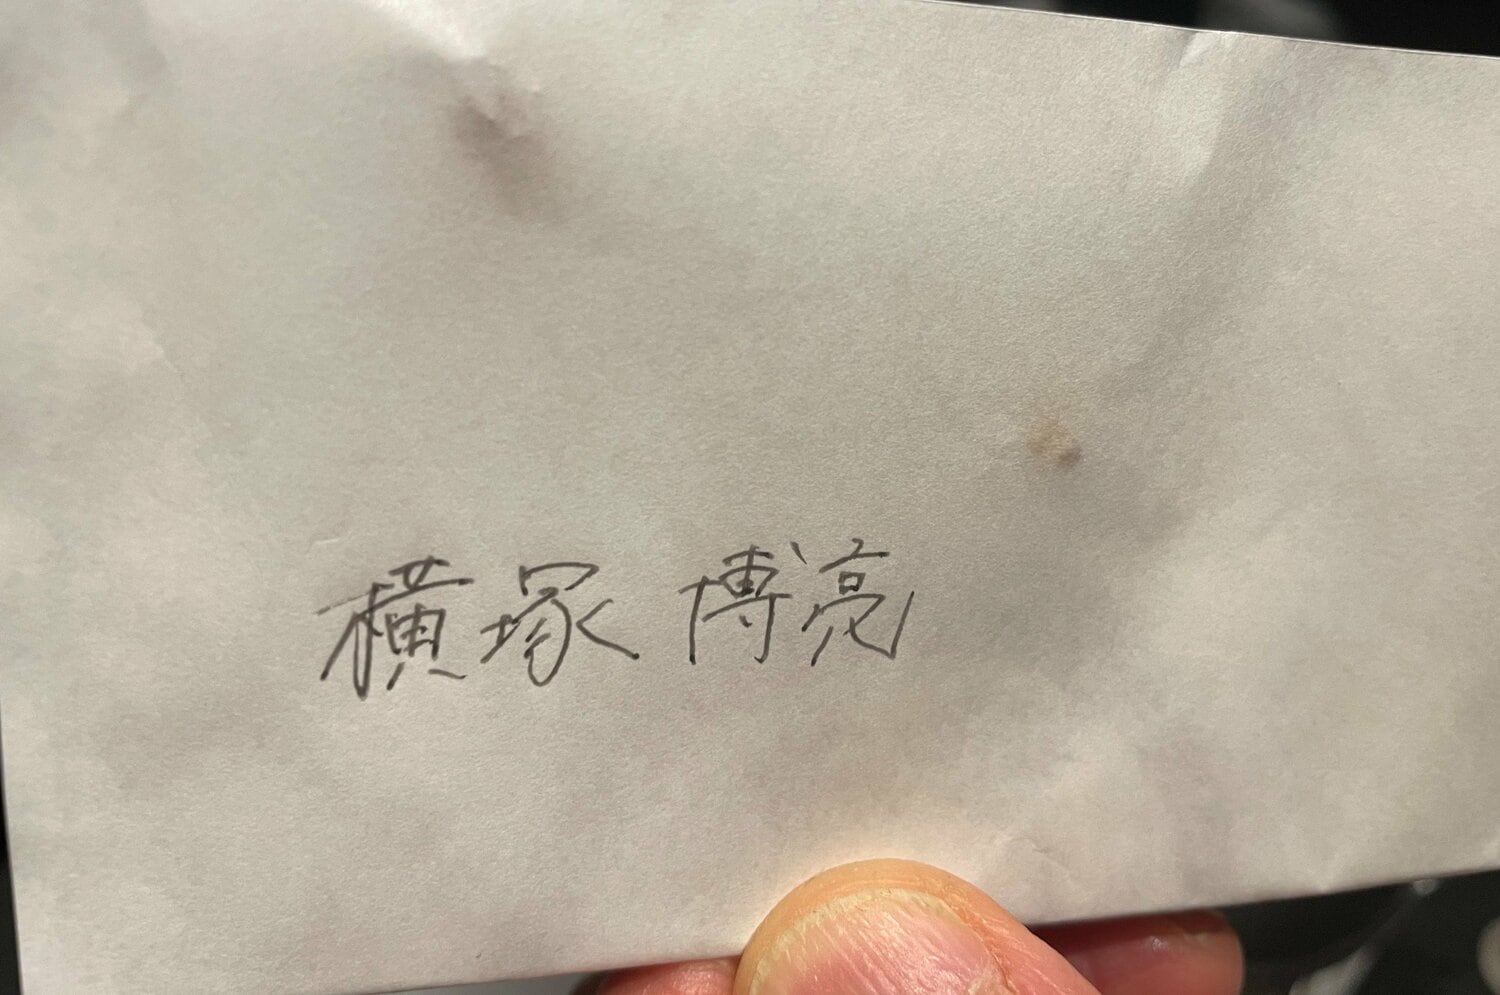 横塚 博亮